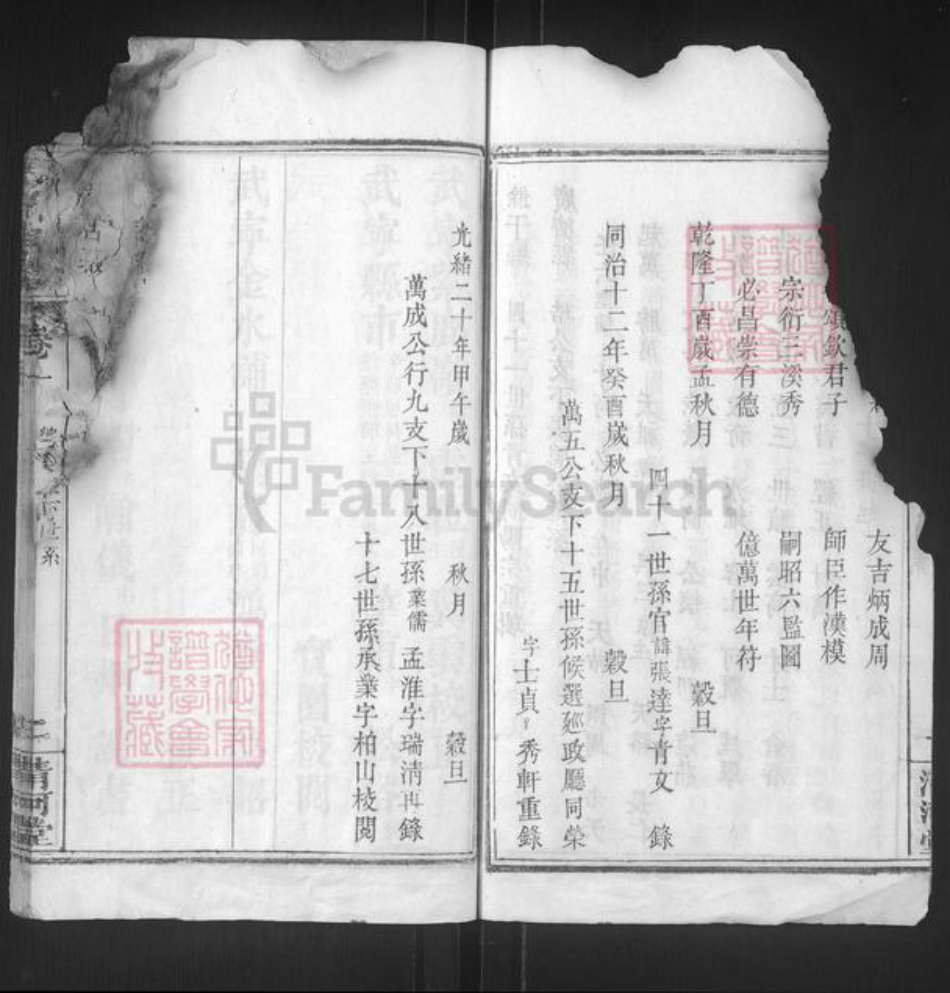 友吉炳成周
欽君子
師臣作漢模
宗衍三溪秀
嗣昭六監圖
必昌崇有德
億萬世年符
乾隆丁酉歲孟秋月 穀旦
四十一世孫官諱張達字青文 錄
同治十二年癸酉歲秋月 穀旦
萬五公支下十五世孫候選廵政廳同榮
字士貞 秀軒重錄
清河堂
光緒二十年甲午歲 秋月 穀旦
萬成公行九支下十八世孫業儒 孟淮字瑞清再錄
十七世孫承業字柏山校閱
卷一
世系
二
清河堂
道德宗譜學會收藏
FamilySearch